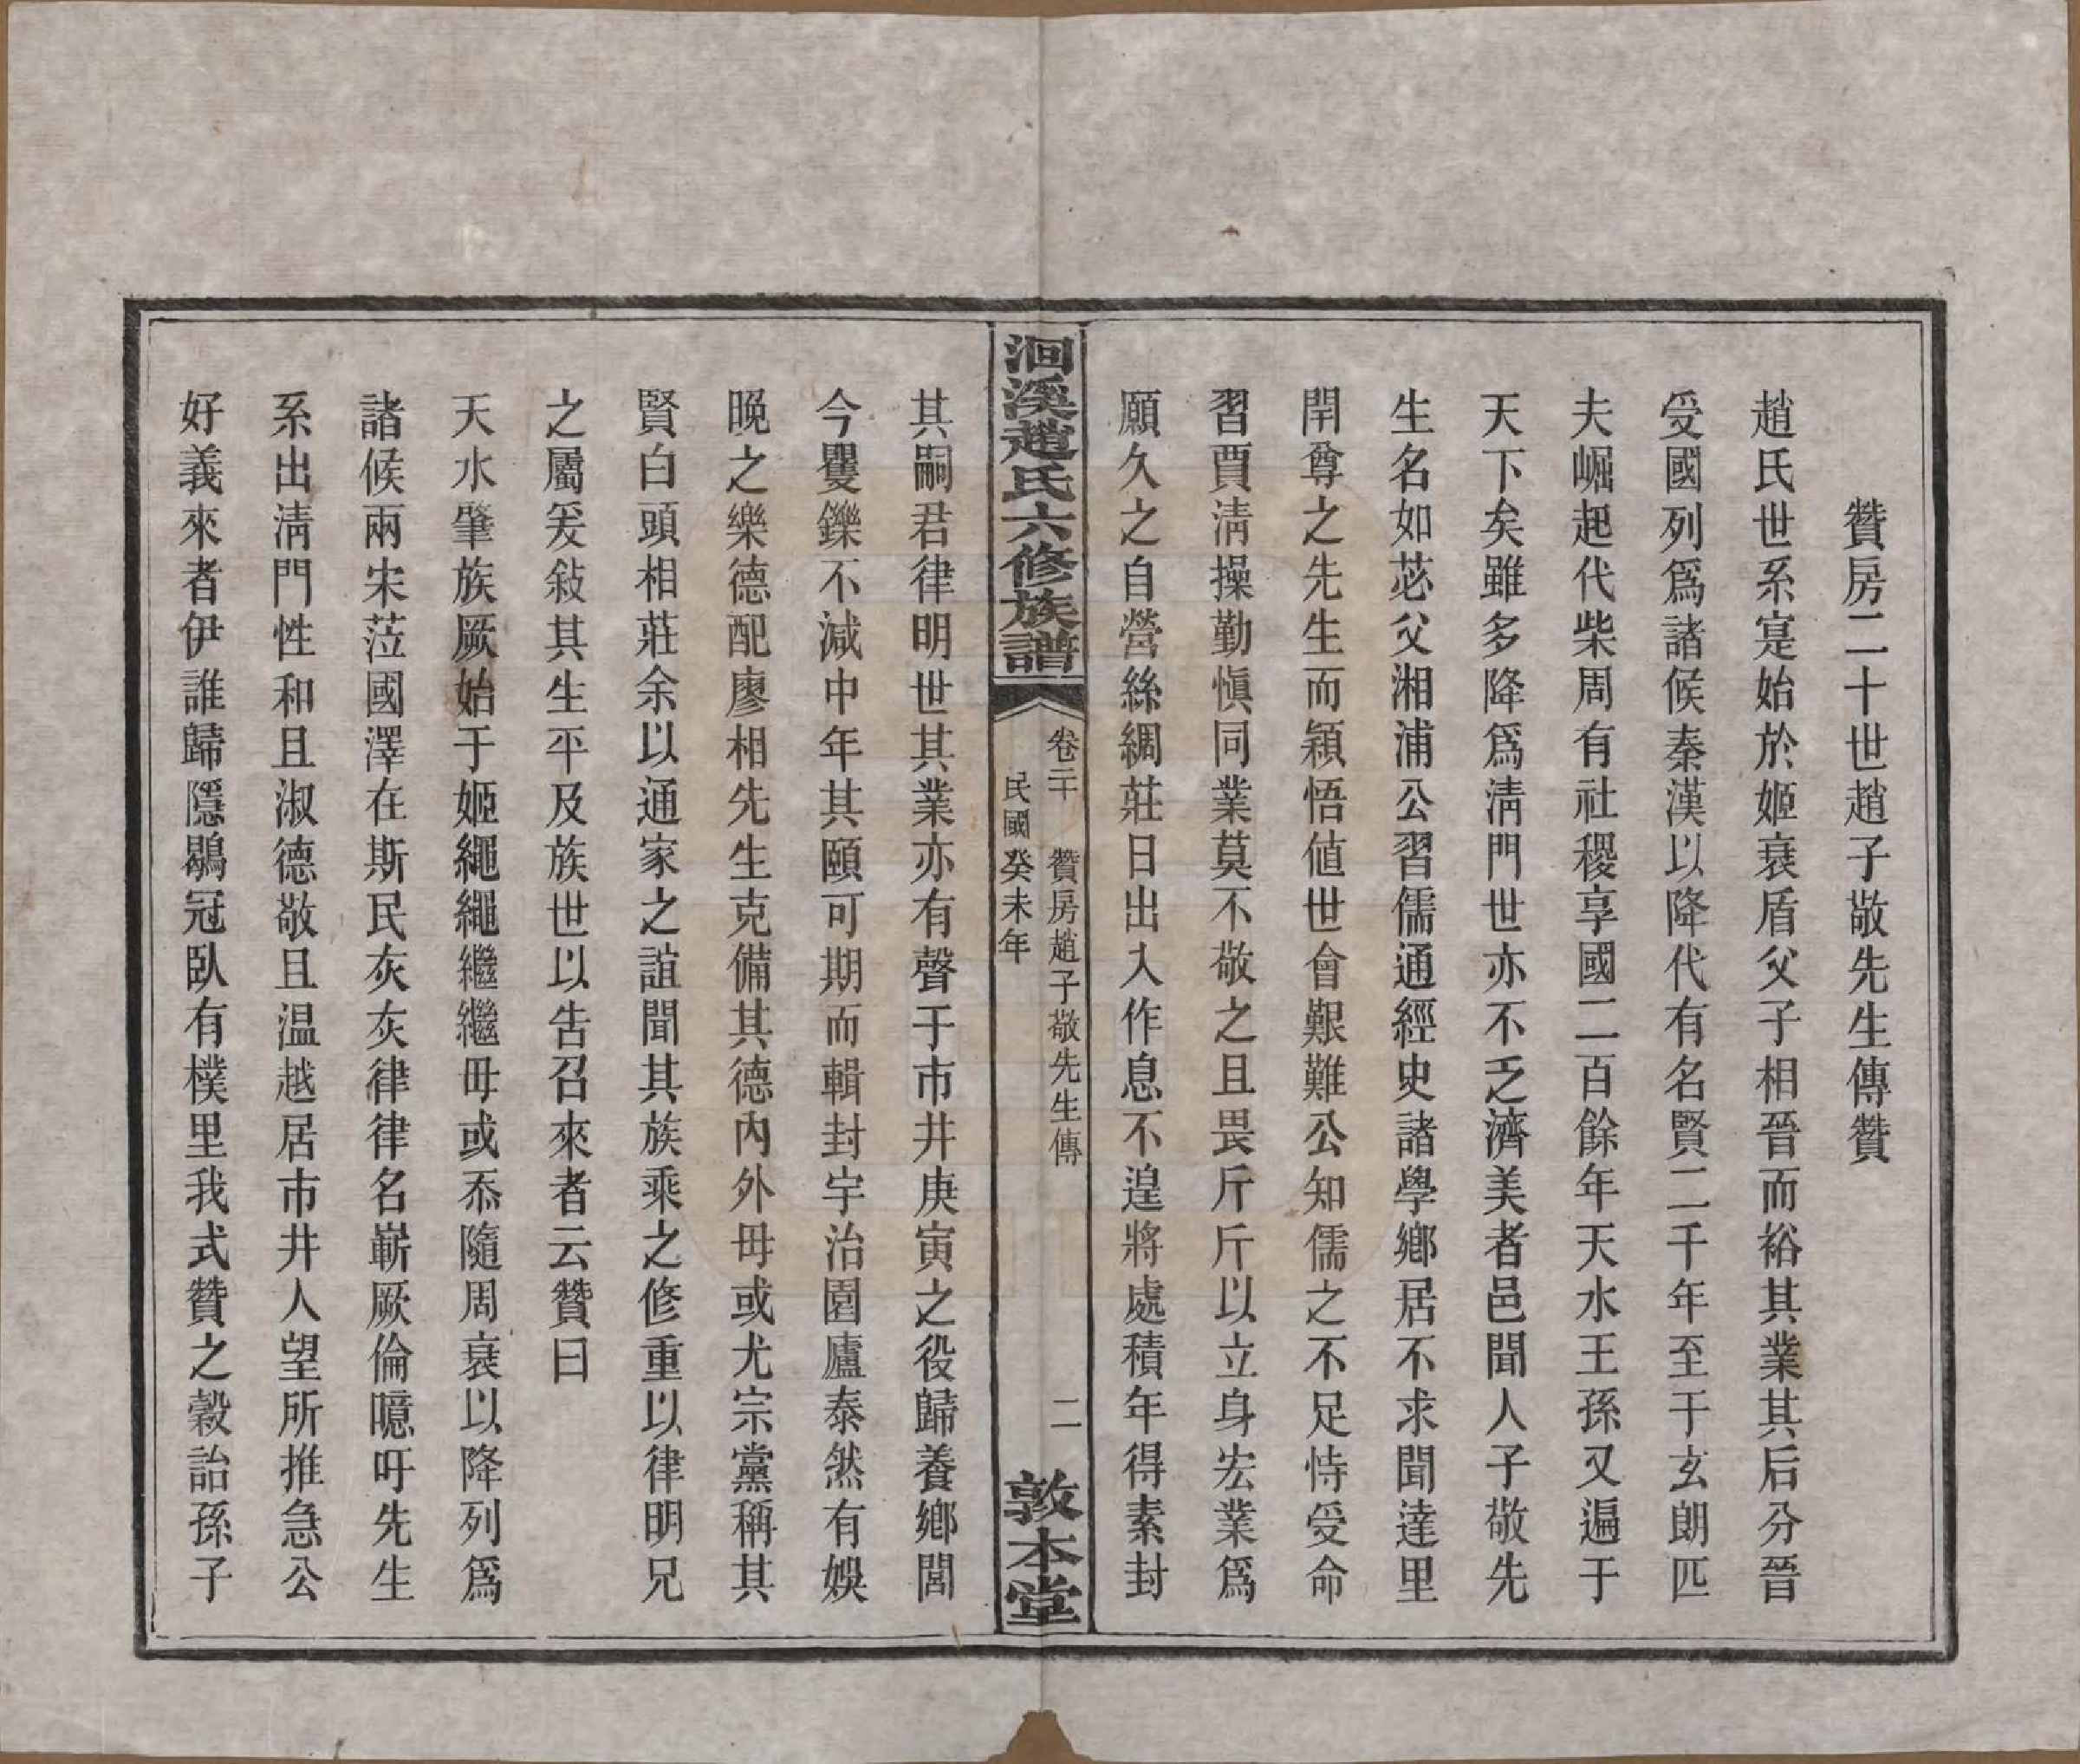 贊房二十世趙子敬先生傳贊
趙氏世系寔始於姬衰盾父子相晉而裕其業其后分晉
受國列爲諸候秦漢以降代有名賢二千年至于玄朗匹
夫崛起代柴周有社稷享國二百餘年天水王孫又遍于
天下矣雖多降爲淸門世亦不乏濟美者邑聞人子敬先
生名如苾父湘浦公習儒通經史諸學鄕居不求聞達里
閈尊之先生而穎悟値世會艱難公知儒之不足恃受命
習賈淸操勤愼同業莫不敬之且畏斤斤以立身宏業爲
願久之自營絲綢莊日出入作息不遑將處積年得素封
洄溪趙氏六修族譜
卷二十　贊房趙子敬先生傳
民國癸未年
二
敦本堂
其嗣君律明世其業亦有聲于市井庚寅之役歸養鄕閭
今矍鑠不減中年其頤可期而輯封宇治園廬泰然有娛
晚之樂德配廖相先生克備其德內外毋或尤宗黨稱其
賢白頭相莊余以通家之誼聞其族乘之修重以律明兄
之屬爰敍其生平及族世以告召來者云贊曰
天水肇族厥始于姬繩繩繼繼毋或忝隨周衰以降列爲
諸候兩宋蒞國澤在斯民灰灰律律名嶄厥倫噫吁先生
系出淸門性和且淑德敬且温越居市井人望所推急公
好義來者伊誰歸隱鶡冠臥有樸里我式贊之穀詒孫子